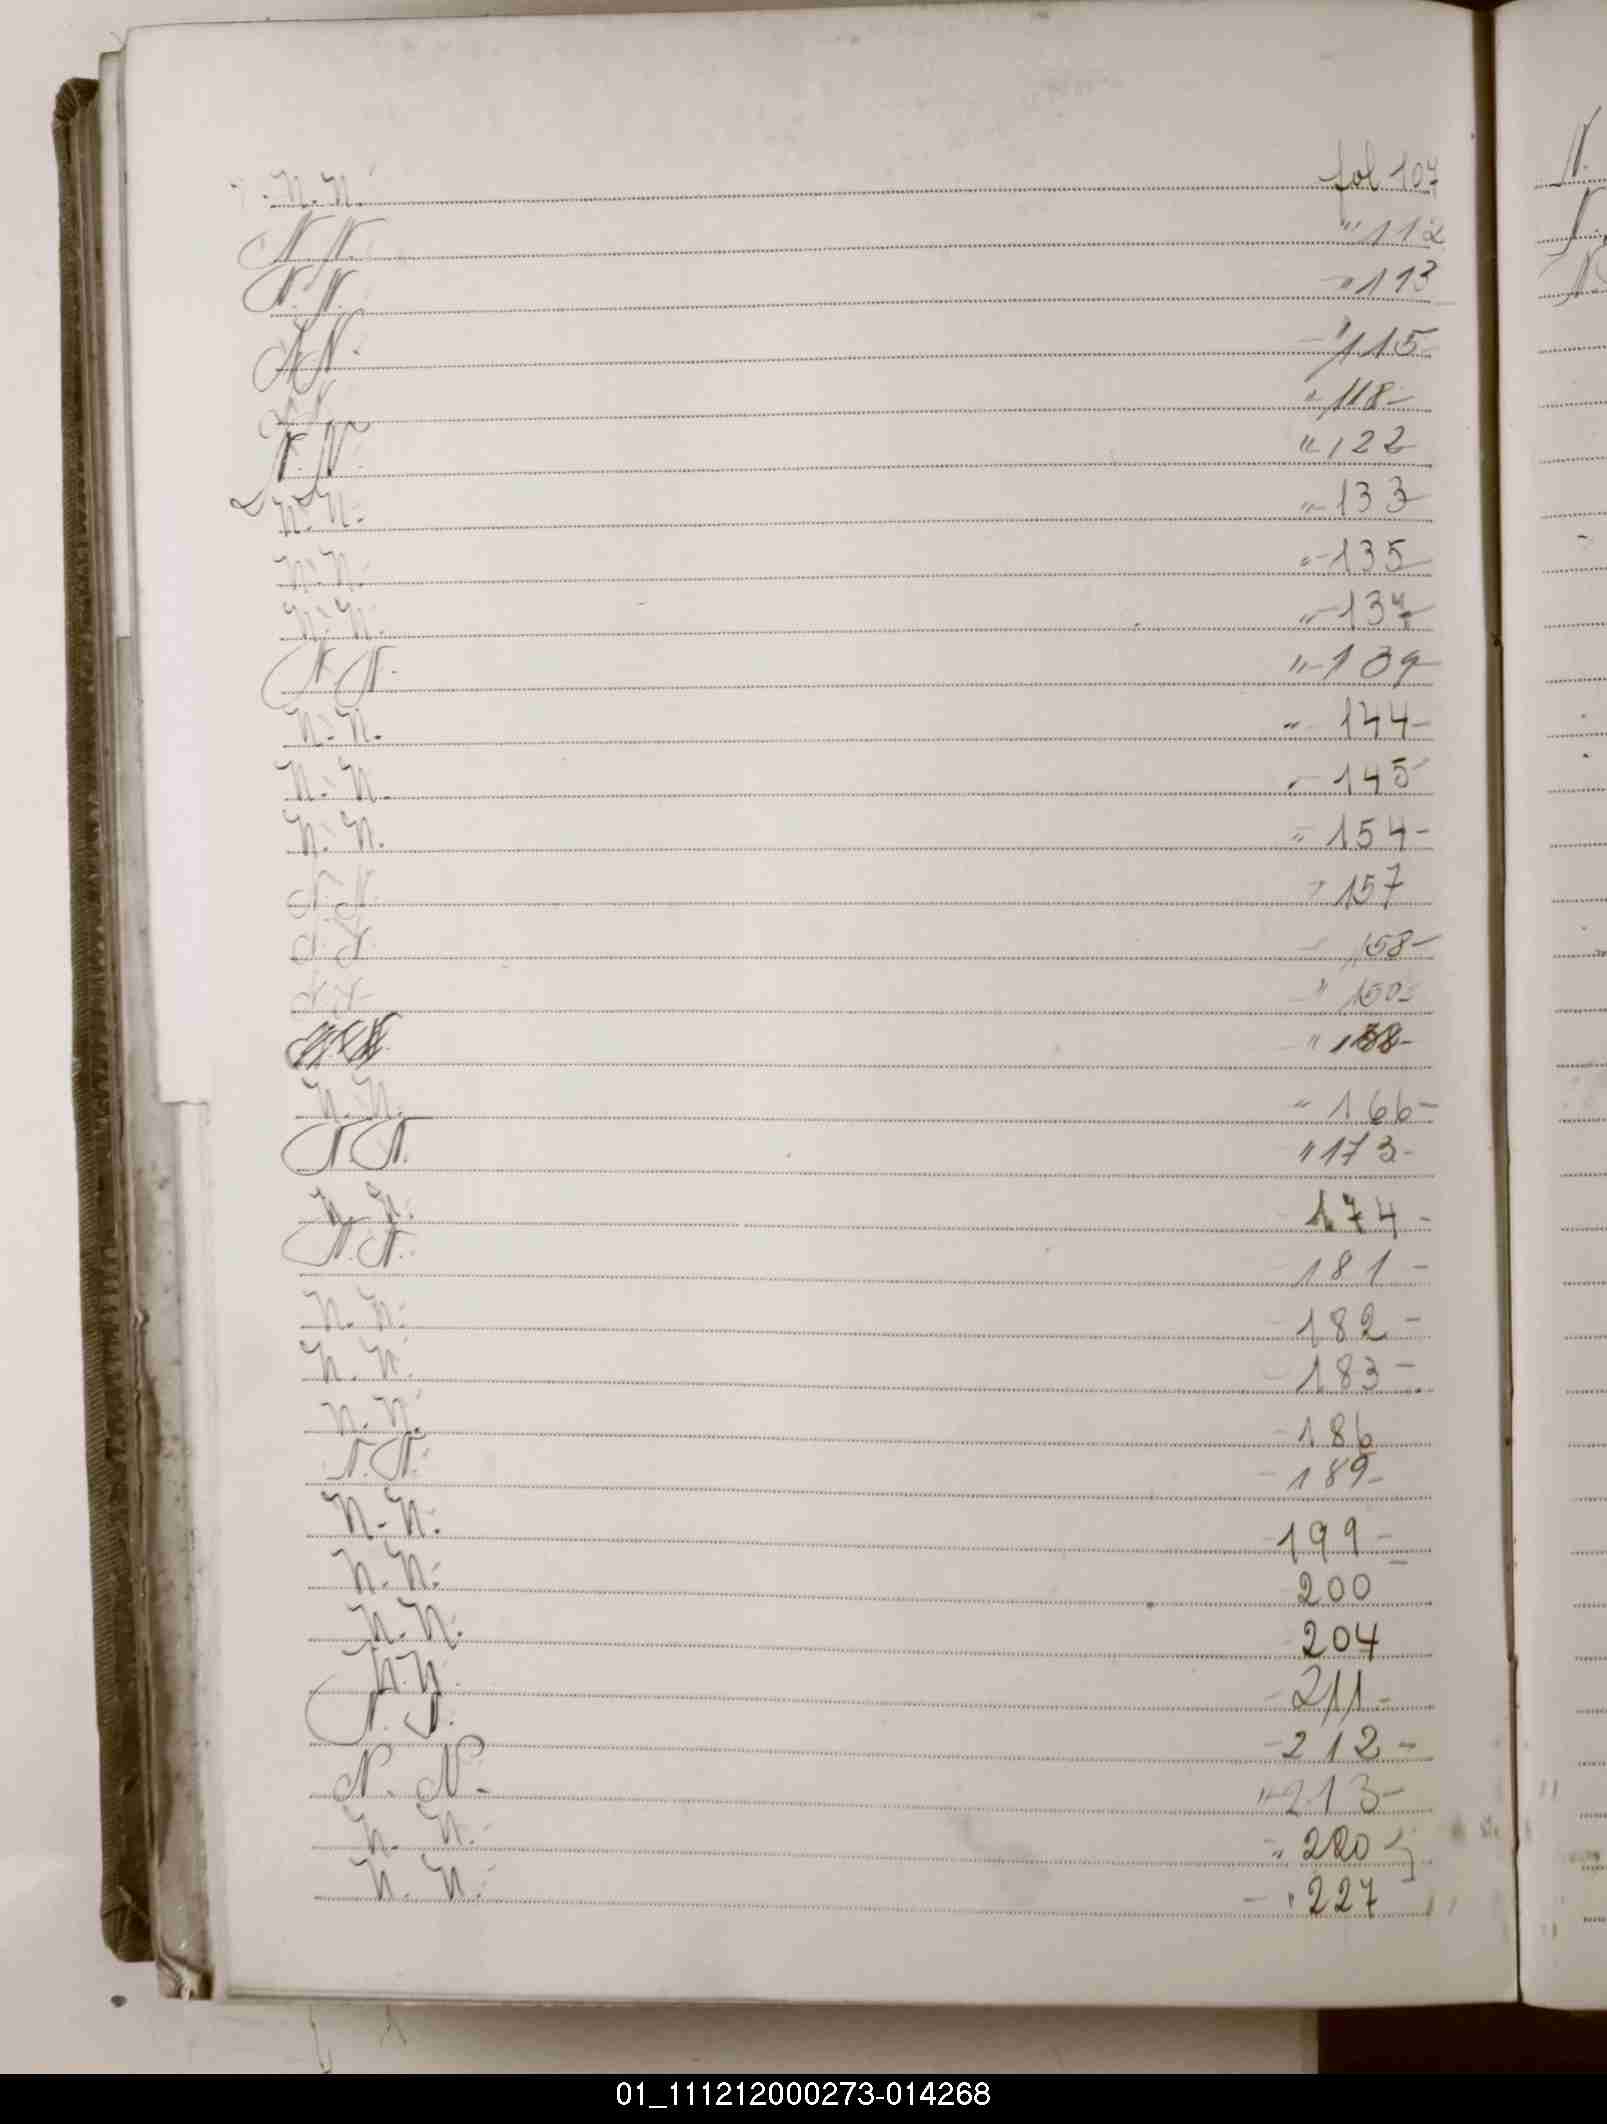 N. N. fol 107
N. N. " 112
N. N. - " 113
N. N. - " 115 -
N. N. " 118 -
N. N. " 122
N. N. " - 133 -
N. N. " - 135 -
N. N. " - 137 -
N. N. " - 139 -
N. N. " - 144 -
N. N. " - 145 -
N. N. " 154 -
N. N. " 157
N. N. - 158 -
N. N. - "
" -
N. N. " 166 -
N. N. " 173 -
N. N. 174 -
N. N. - 181 -
N. N. - 182 -
N. N. 183 -
N. N. - 186
N. N. - 189 -
N. N. - 199 -
N. N. 200
N. N. 204
N. N. - 211 -
N. N. - 212 -
N. N. " 213 -
N. N. " 220 -
N. N. - " 227
01_111212000273-014268